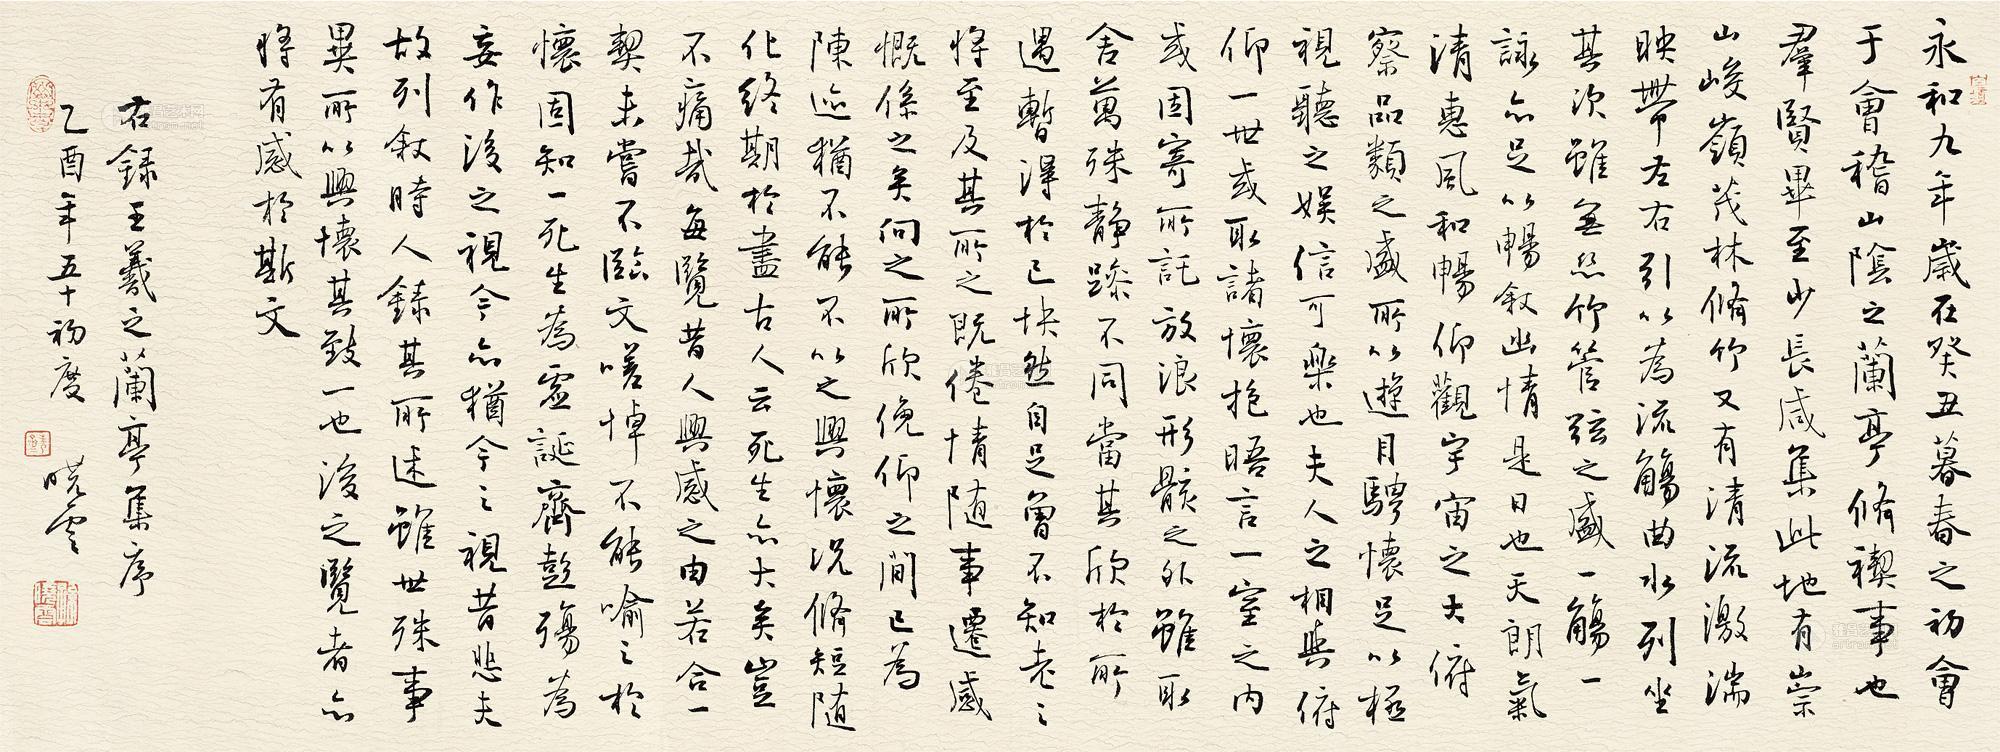 永和九年歲在癸丑暮春之初會
于會稽山陰之蘭亭脩禊事也
羣賢畢至少長咸集此地有崇
山峻嶺茂林脩竹又有清流激湍
映帶左右引以為流觴曲水列坐
其次雖無絲竹管弦之盛一觴一
詠亦足以暢敘幽情是日也天朗氣
清惠風和暢仰觀宇宙之大俯
察品類之盛所以遊目騁懷足以極
視聽之娛信可樂也夫人之相與俯
仰一世或取諸懷抱晤言一室之內
或因寄所託放浪形骸之外雖取
舍萬殊靜躁不同當其欣於所
遇暫得於己怏然自足曾不知老之
將至及其所之既倦情隨事遷感
慨係之矣向之所欣俛仰之間已為
陳迹猶不能不以之興懷況脩短隨
化終期於盡古人云死生亦大矣豈
不痛哉每覽昔人興感之由若合一
契未嘗不臨文嗟悼不能喻之於
懷固知一死生為虛誕齊彭殤為
妄作後之視今亦猶今之視昔悲夫
故列敘時人錄其所述雖世殊事
異所以興懷其致一也後之覽者亦
將有感於斯文
右録王羲之蘭亭集序
乙酉年五十初度 曉雲